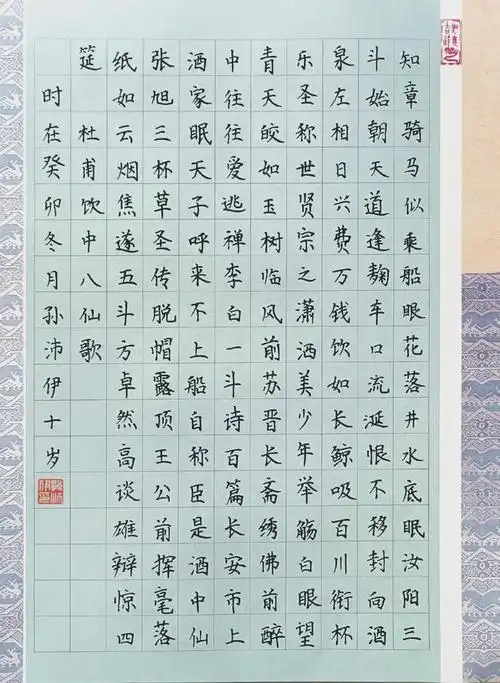 知章骑马似乘船眼花落井水底眠汝阳三
斗始朝天道逢麹车口流涎恨不移封向酒
泉左相日兴费万钱饮如长鲸吸百川衔杯
乐圣称世贤宗之潇洒美少年举觞白眼望
青天皎如玉树临风前苏晋长斋绣佛前醉
中往往爱逃禅李白一斗诗百篇长安市上
酒家眠天子呼来不上船自称臣是酒中仙
张旭三杯草圣传脱帽露顶王公前挥毫落
纸如云烟焦遂五斗方卓然高谈雄辩惊四
筵 杜甫饮中八仙歌
时在癸卯冬月孙沛伊十岁